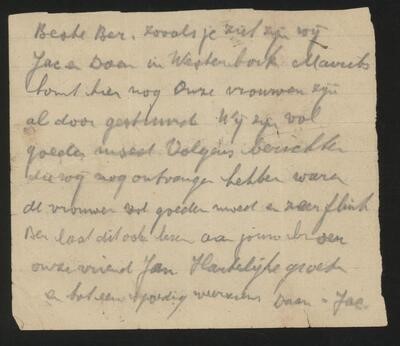 Beste Ber. zooals je ziet zijn wij
Jac en Daan in Westerbork Maurits
komt hier nog Onze vrouwen zijn
al door gestuurd Wij zijn vol
goeden moed Volgens berichten
die wij nog ontvangen hebben waren
de vrouwen vol goeden moed en zeer flink
Ber laat dit ook lezen aan jouw broer
onze vriend Jan Hartelijke groeten
en tot een spoedig weerziens Daan - Jac.